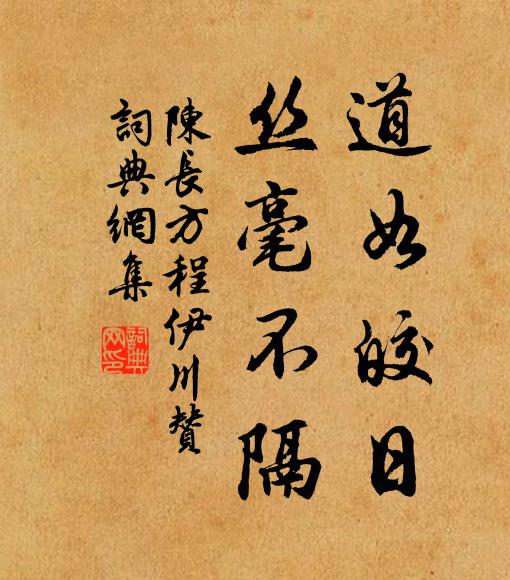 道如皎日
丝毫不隔
陳長方程伊川贊
詞典網集
詞典
网印